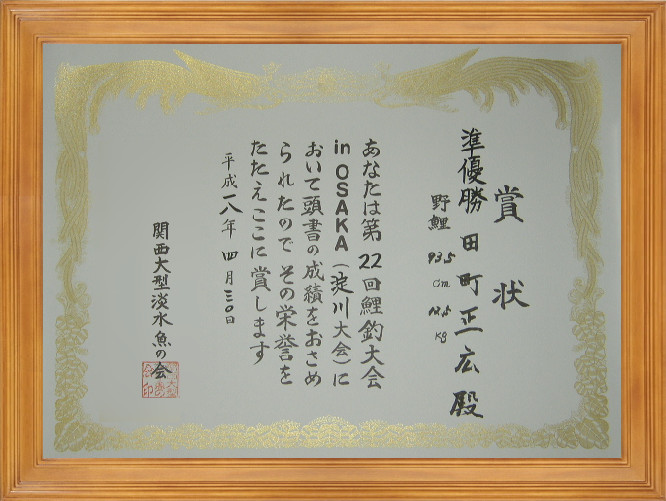 賞状
準優勝 田町正広殿
野鯉 93.5cm 12.5kg
あなたは第22回鯉釣大会
in OSAKA(淀川大会)に
おいて頭書の成績をおさめ
られたので その栄誉を
たたえここに賞します
平成一八年 四月三〇日
関西大型淡水魚の会